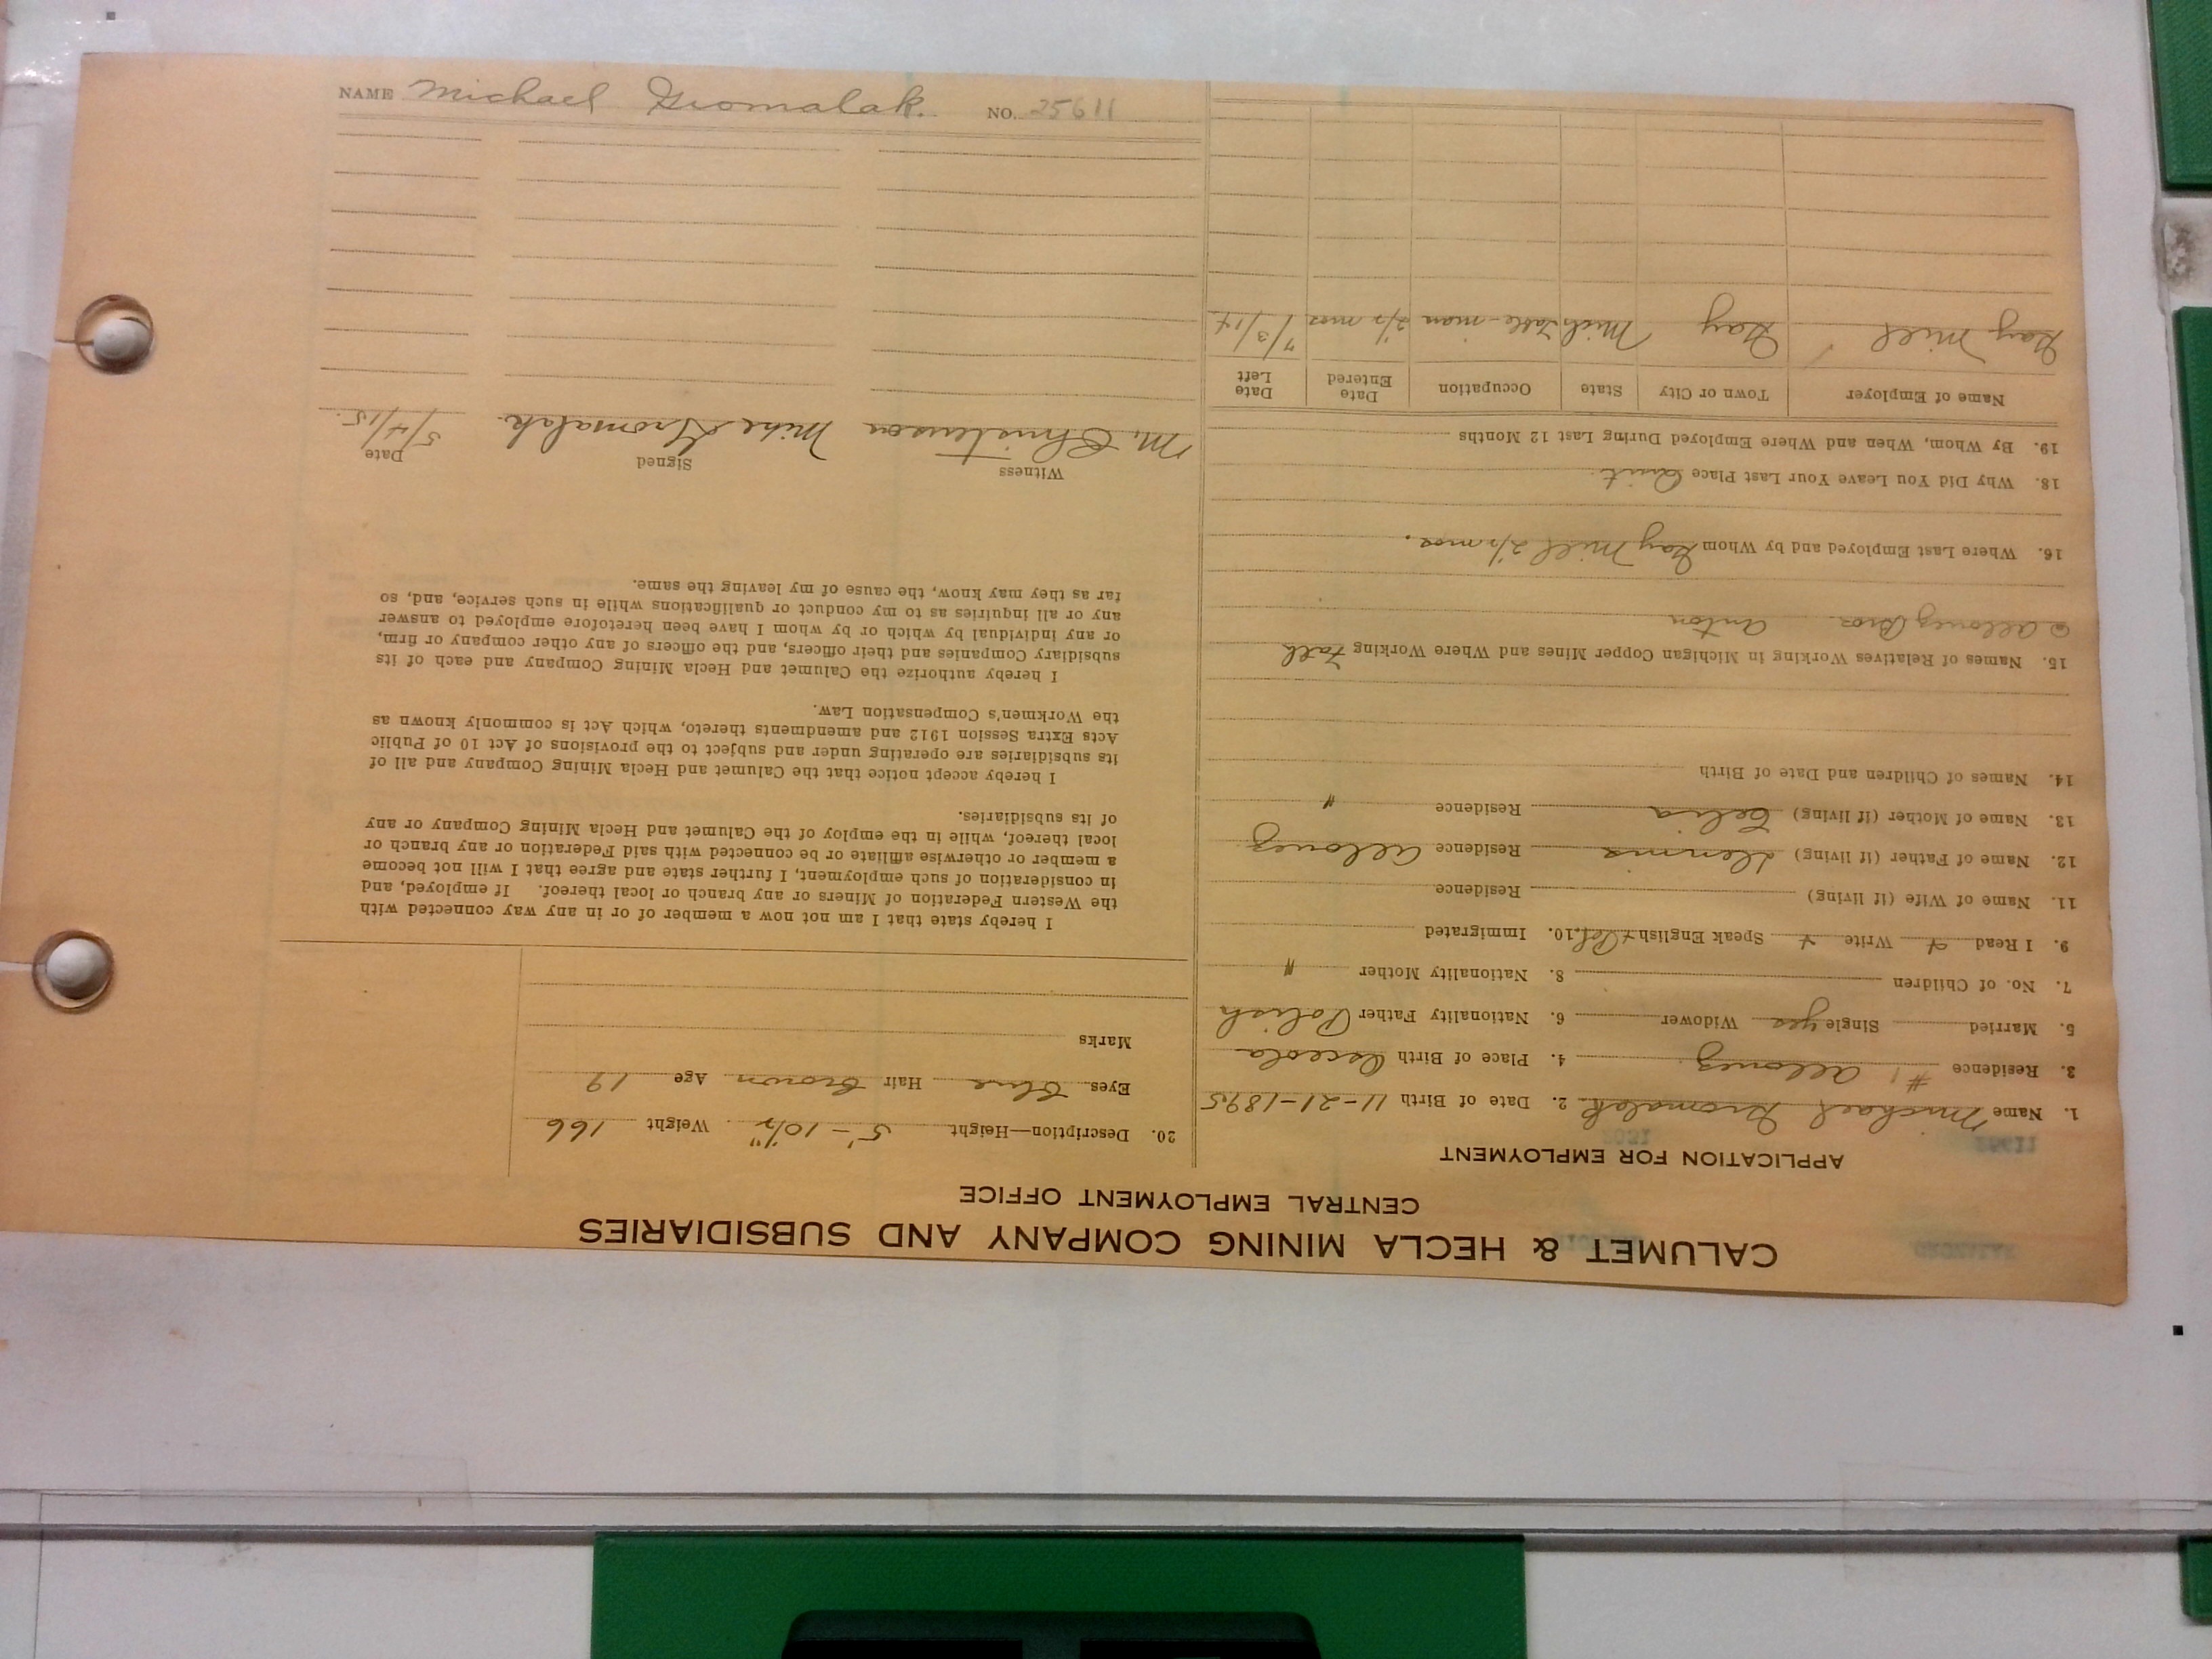 CALUMET & HECLA MINING COMPANY AND SUBSIDIARIES
CENTRAL EMPLOYMENT OFFICE
APPLICATION FOR EMPLOYMENT
1. Name Michael Gromalak 2. Date of Birth 11-21-1895
3. Residence #1 Allouez 4. Place of Birth Osceola
5. Married Single yes Widower 6. Nationality Father Polish
7. No. of Children 8. Nationality Mother "
9. I Read + Write + Speak English + Pol. 10. Immigrated
11. Name of Wife (if living) Residence
12. Name of Father (if living) Dennis Residence Allouez
13. Name of Mother (if living) Celia Residence "
14. Names of Children and Date of Birth
15. Names of Relatives Working in Michigan Copper Mines and Where Working Fath
@ Allouez Bros. Anton
16. Where Last Employed and by Whom Gay Mill 2½ mos.
18. Why Did You Leave Your Last Place Quit.
19. By Whom, When and Where Employed During Last 12 Months
Name of Employer Town or City State Occupation Date Entered Date Left
Gay Mill Gay Mich Table-man 2½ mos 7/3/14
20. Description—Height 5'-10½" Weight 166
Eyes Blue Hair Brown Age 19
Marks
I hereby state that I am not now a member of or in any way connected with
the Western Federation of Miners or any branch or local thereof. If employed, and
in consideration of such employment, I further state and agree that I will not become
a member or otherwise affiliate or be connected with said Federation or any branch or
local thereof, while in the employ of the Calumet and Hecla Mining Company or any
of its subsidiaries.
I hereby accept notice that the Calumet and Hecla Mining Company and all of
its subsidiaries are operating under and subject to the provisions of Act 10 of Public
Acts Extra Session 1912 and amendments thereto, which Act is commonly known as
the Workmen's Compensation Law.
I hereby authorize the Calumet and Hecla Mining Company and each of its
subsidiary Companies and their officers, and the officers of any other company or firm,
or any individual by which or by whom I have been heretofore employed to answer
any or all inquiries as to my conduct or qualifications while in such service, and, so
far as they may know, the cause of my leaving the same.
Witness Signed Date
M. Christenson Mike Gromalak 5/4/15.
NAME Michael Gromalak. NO. 25611